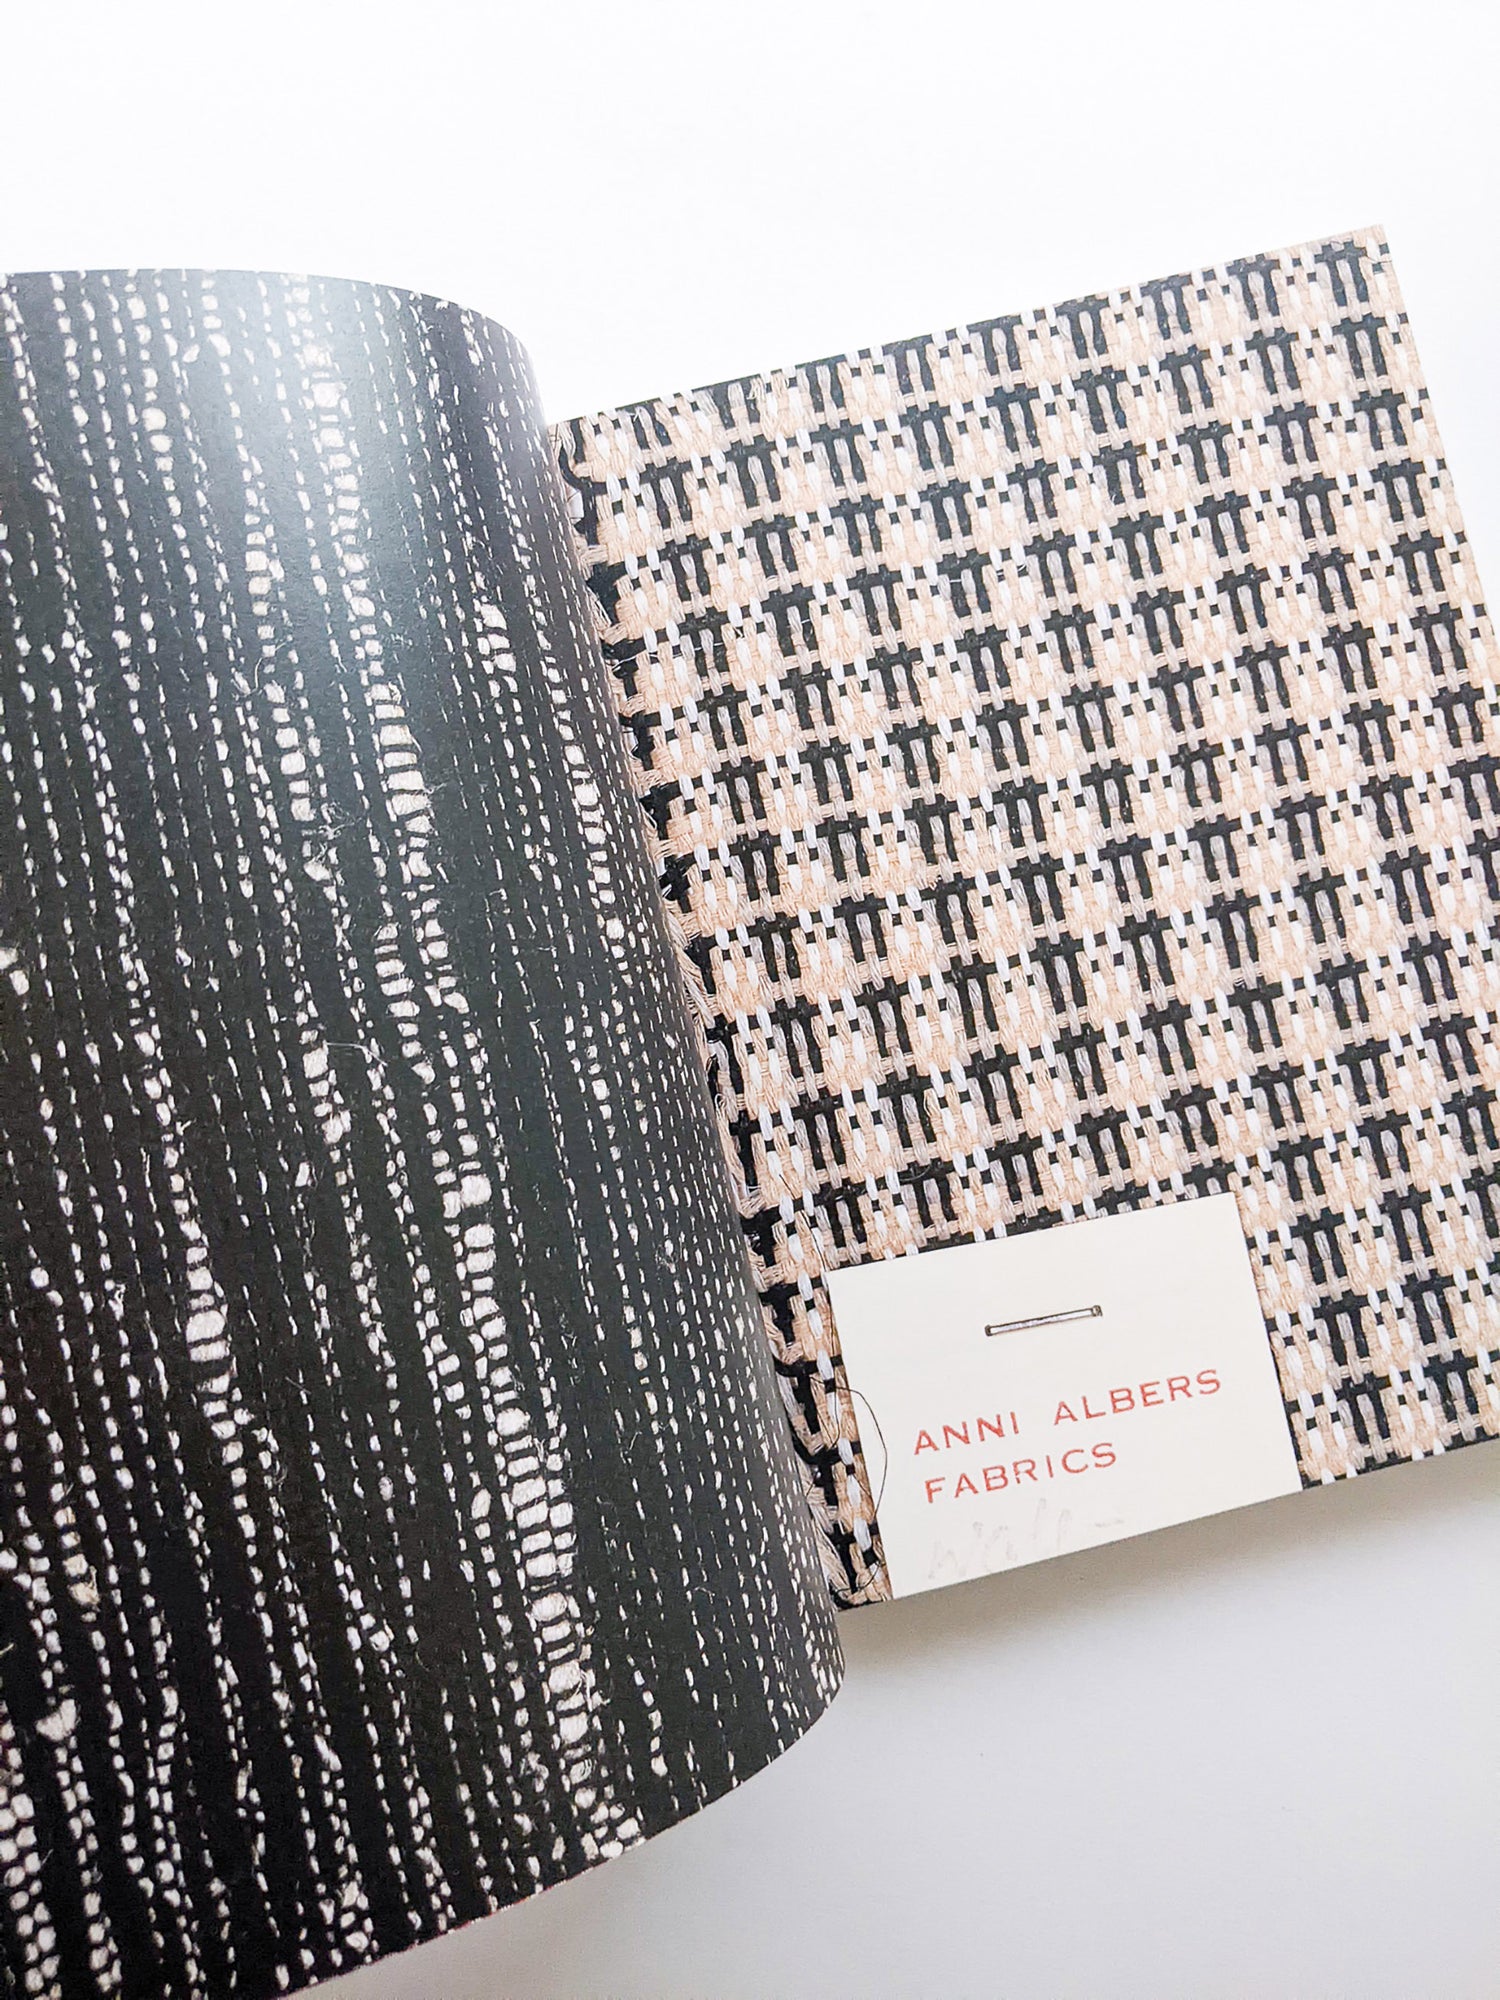 ANNI ALBERS
FABRICS